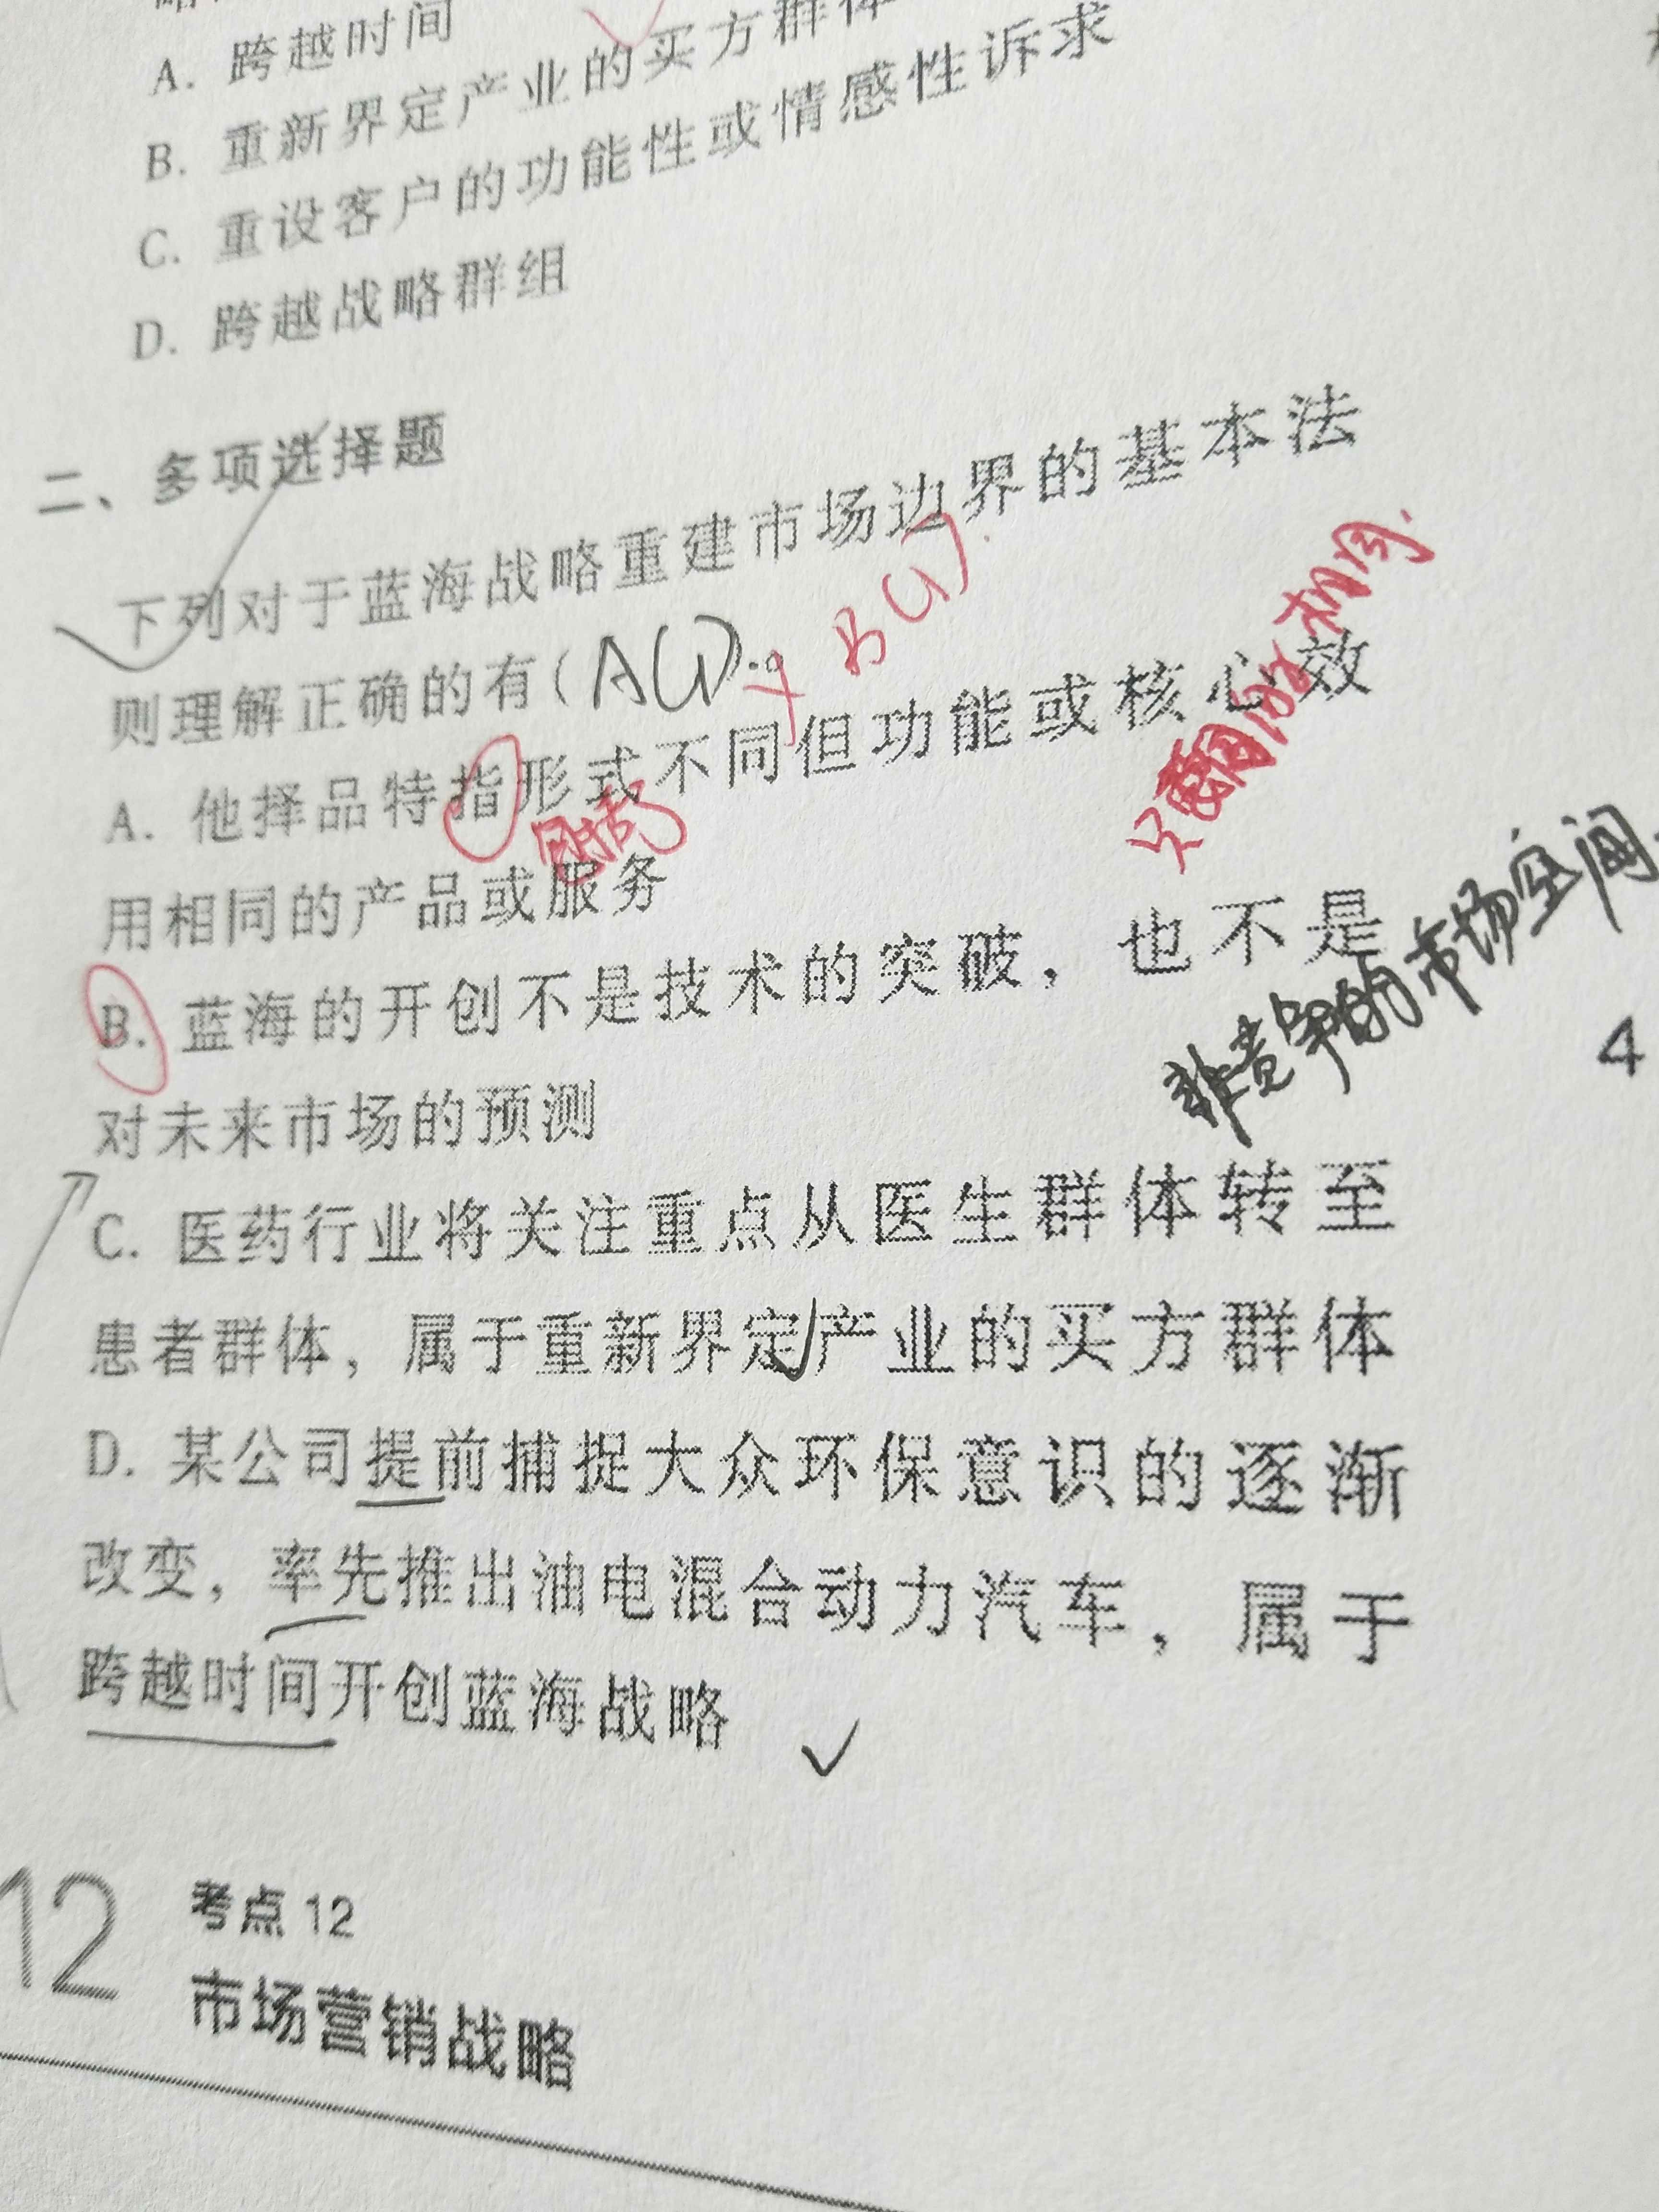 A. 跨越时间
B. 重新界定产业的买方群体
C. 重设客户的功能性或情感性诉求
D. 跨越战略群组
二、多项选择题
下列对于蓝海战略重建市场边界的基本法
则理解正确的有(ACD)。
BCD.
A. 他择品特指形式不同但功能或核心效
用相同的产品或服务
相同.
B. 蓝海的开创不是技术的突破，也不是
非竞争的市场空间.
对未来市场的预测
4
C. 医药行业将关注重点从医生群体转至
患者群体，属于重新界定产业的买方群体
D. 某公司提前捕捉大众环保意识的逐渐
改变，率先推出油电混合动力汽车，属于
跨越时间开创蓝海战略
12
考点 12
市场营销战略